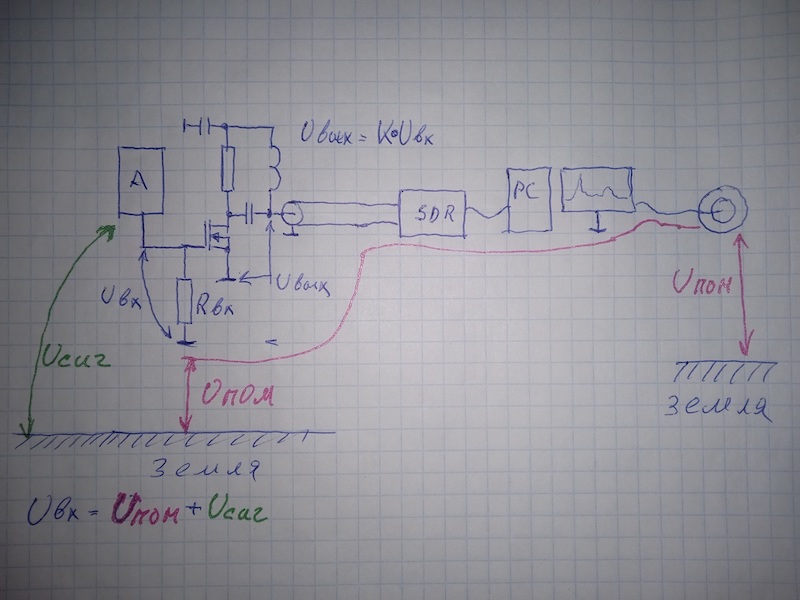 Uвых = K•Uвх
A
SDR
PC
Uвх
Rвх
Uвых
Uсиг
Uпом
Uпом
Земля
Земля
Uвх = Uпом + Uсиг